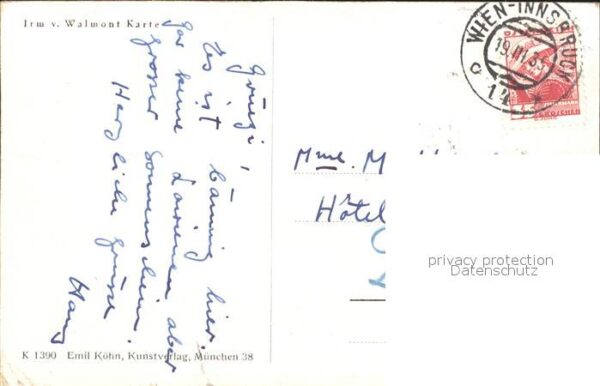 Irm v. Walmont Karte
Grüezi,
Es ist bäumig hier.
Gar keine Lawinen aber
grosser Sonnenschein.
Herzliche Grüsse
Hans
K 1390 Emil Köhn, Kunstverlag, München 38
WIEN-INNSBRUCK
19.III.35
14
GROSCHEN
Mme. M
Hôtel
privacy protection
Datenschutz